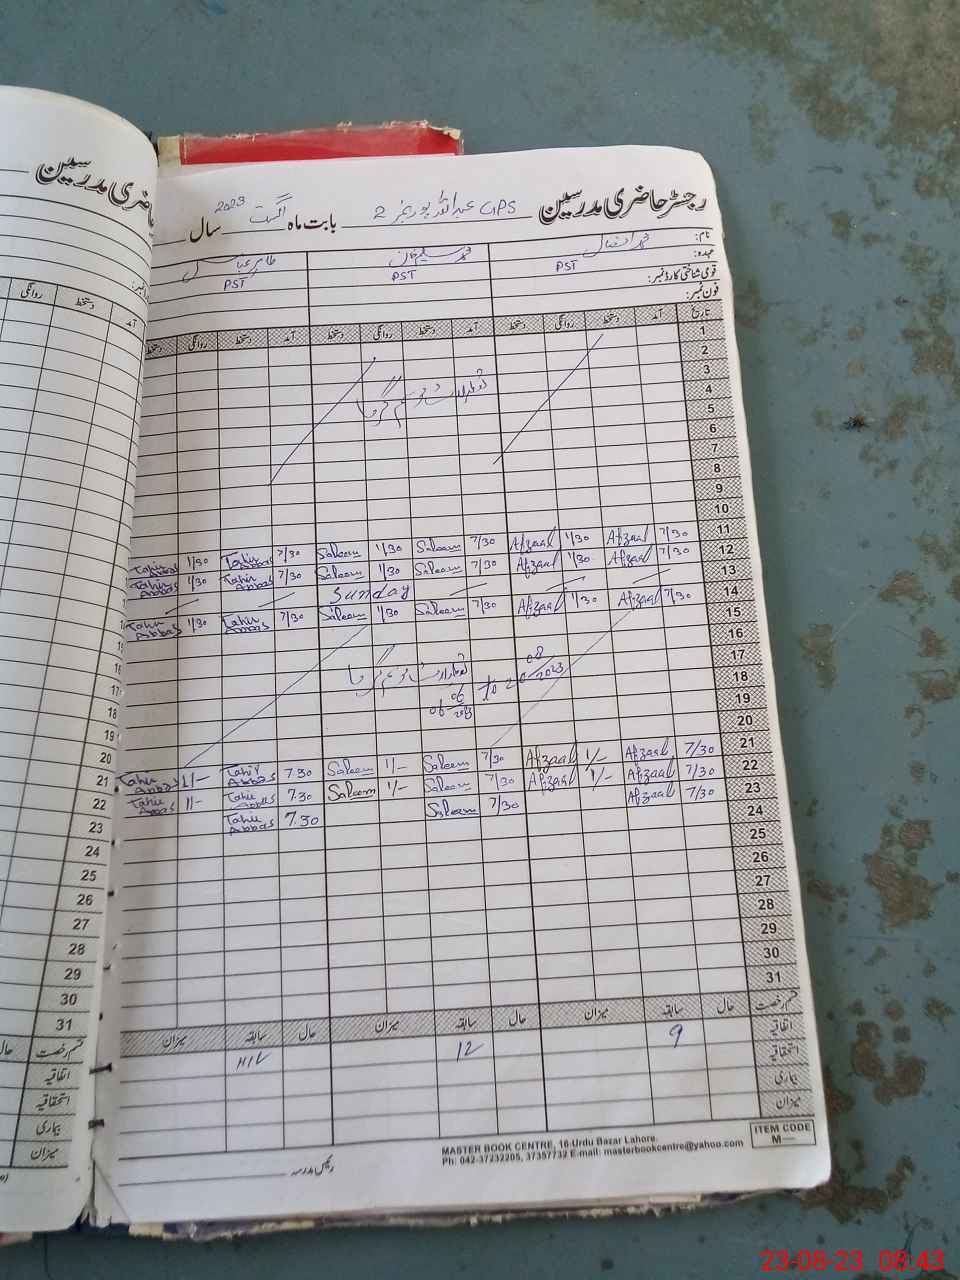 رجسٹر حاضری مدرسین GPS عبداللہ پور نمبر 2 بابت ماہ اگست سال 2023
نام: محمد افضال محمد سلیم خان طاہر عباس
عہدہ: PST PST PST
قومی شناختی کارڈ نمبر:
فون نمبر:
تاریخ آمد دستخط روانگی دستخط آمد دستخط روانگی دستخط آمد دستخط روانگی دستخط
1
2
3
4
تعطیلات موسم گرما
5
6
7
8
9
10
11
Tahir Abbas 1/30 Tahir Abbas 7/30 Saleem 1/30 Saleem 7/30 Afzaal 1/30 Afzaal 7/30 12
Tahir Abbas 1/30 Tahir Abbas 7/30 Saleem 1/30 Saleem 7/30 Afzaal 1/30 Afzaal 7/30
Sunday 13
Tahir Abbas 1/30 Tahir Abbas 7/30 Saleem 1/30 Saleem 7/30 Afzaal 1/30 Afzaal 7/30 14
15
16
17
تعطیلات موسم گرما
06/06/2023 to 20/08/2023
18
19
20
Tahir Abbas 1/- Tahir Abbas 7.30 Saleem 1/- Saleem 7/30 Afzaal 1/- Afzaal 7/30 21
Tahir Abbas 1/- Tahir Abbas 7.30 Saleem 1/- Saleem 7/30 Afzaal 1/- Afzaal 7/30 22
Tahir Abbas 7.30 Saleem 7/30 Afzaal 7/30 23
24
25
26
27
28
29
30
31
قسم رخصت حال سابقہ میزان حال سابقہ میزان حال سابقہ میزان
اتفاقیہ 9 12
استحقاقیہ
بیماری
میزان
ITEM CODE
M—
MASTER BOOK CENTRE, 16-Urdu Bazar Lahore.
Ph: 042-37232205, 37357732 E-mail: masterbookcentre@yahoo.com
رئیس مدرسہ
حاضری مدرسین
آمد دستخط روانگی
15
16
17
18
19
20
21
22
23
24
25
26
27
28
29
30
31
قسم رخصت حال
اتفاقیہ
استحقاقیہ
بیماری
میزان
23-08-23 08:43